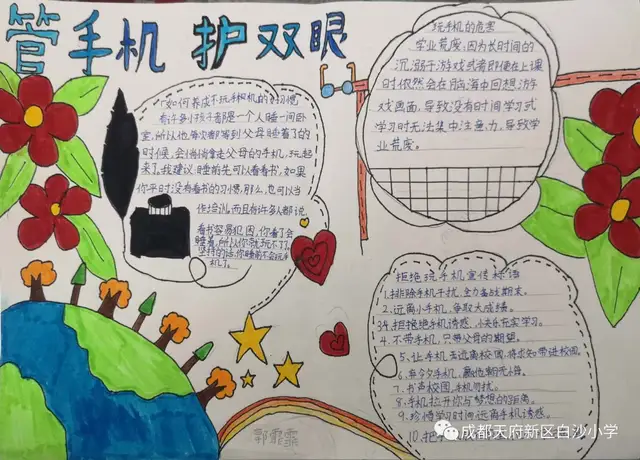 管手机 护双眼
玩手机的危害
学业荒废:因为长时间的
沉溺于游戏或者即使在上课
时依然会在脑海中回想游
戏画面,导致没有时间学习或
学习时无法集中注意力,导致学
业荒废。
如何养成不玩手机的好习惯
有许多小孩子都是一个人睡一间卧
室,所以他每次都等到父母睡着了的
时候,会悄悄拿走父母的手机,玩起
来了。我建议:睡前先可以看看书,如果
你平时没有看书的习惯,那么,也可以当
作培训,而且有许多人都说,
看书容易犯困,你看了会
睡着,所以你就玩不了了,
坚持的话,你睡前不会玩手
机了。
拒绝玩手机宣传标语
1、排除手机干扰,全力备战期末。
2、远离小手机,争取大成绩。
3、拒绝手机诱惑,小快乐充实学习。
4、不带手机,只带父母的期望。
5、让手机去远离校园,将求知带进校园。
6、弃今夕手机,赢他朝光辉。
7、书声校园,手机勿扰。
8、手机拉开你与梦想的距离。
9、珍惜学习时间远离手机诱惑。
10、把手
郭霏霏
成都天府新区白沙小学